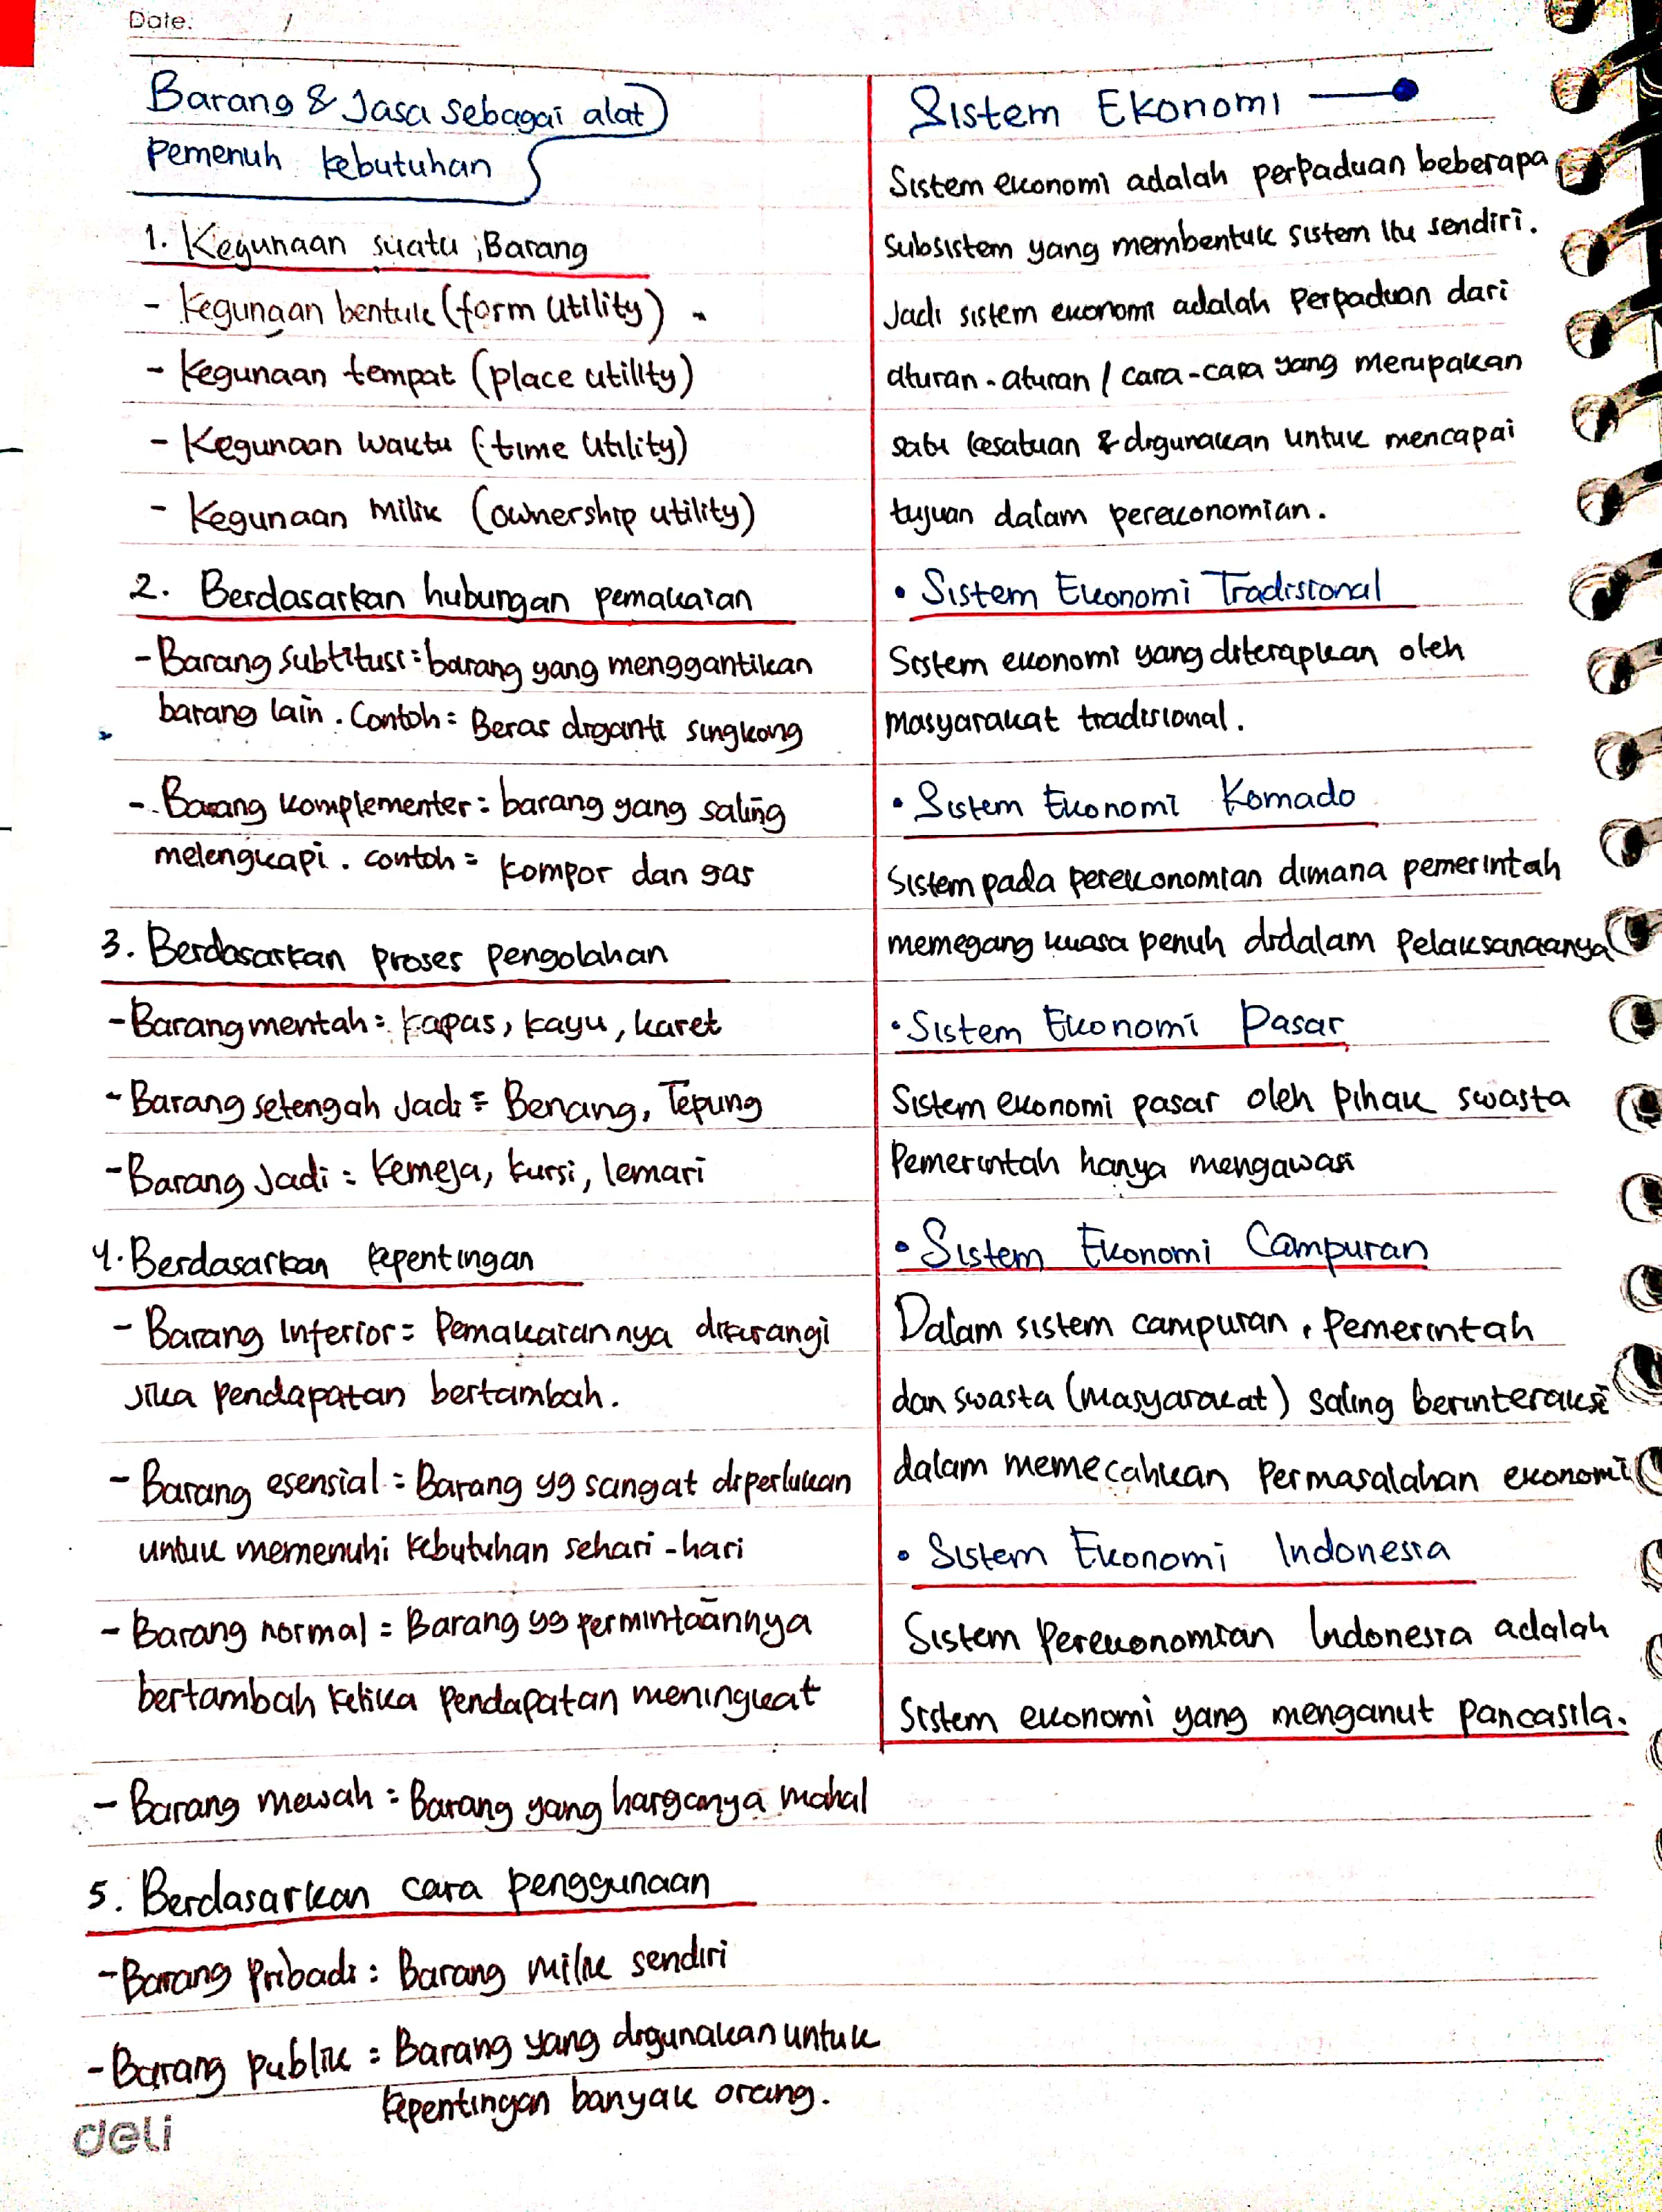 Date: /
Barang & Jasa sebagai alat
pemenuh kebutuhan
1. Kegunaan suatu Barang
- Kegunaan bentuk (form Utility)
- Kegunaan tempat (place utility)
- Kegunaan waktu (time Utility)
- Kegunaan milik (ownership utility)
2. Berdasarkan hubungan pemakaian
- Barang Subtitusi : barang yang menggantikan
barang lain. Contoh = Beras diganti singkong
- Barang komplementer : barang yang saling
melengkapi. contoh = kompor dan gas
3. Berdasarkan proses pengolahan
- Barang mentah : kapas, kayu, karet
- Barang setengah Jadi = Benang, Tepung
- Barang Jadi : Kemeja, kursi, lemari
4. Berdasarkan kepentingan
- Barang Inferior = Pemakaiannya dikurangi
Jika pendapatan bertambah.
- Barang esensial = Barang yg sangat diperlukan
untuk memenuhi kebutuhan sehari-hari
- Barang normal = Barang yg permintaannya
bertambah ketika pendapatan meningkat
- Barang mewah = Barang yang harganya mahal
5. Berdasarkan cara penggunaan
- Barang Pribadi : Barang milik sendiri
- Barang publik = Barang yang digunakan untuk
kepentingan banyak orang.
deli
Sistem Ekonomi
Sistem ekonomi adalah perpaduan beberapa
subsistem yang membentuk sistem itu sendiri.
Jadi sistem ekonomi adalah Perpaduan dari
aturan-aturan / cara-cara yang merupakan
satu kesatuan & digunakan untuk mencapai
tujuan dalam perekonomian.
• Sistem Ekonomi Tradisional
Sistem ekonomi yang diterapkan oleh
masyarakat tradisional.
• Sistem Ekonomi Komado
Sistem pada perekonomian dimana pemerintah
memegang kuasa penuh didalam Pelaksanaanya
• Sistem Ekonomi Pasar
Sistem ekonomi pasar oleh pihak swasta
Pemerintah hanya mengawasi
• Sistem Ekonomi Campuran
Dalam sistem campuran, Pemerintah
dan swasta (masyarakat) saling berinteraksi
dalam memecahkan Permasalahan ekonomi
• Sistem Ekonomi Indonesia
Sistem Perekonomian Indonesia adalah
Sistem ekonomi yang menganut pancasila.